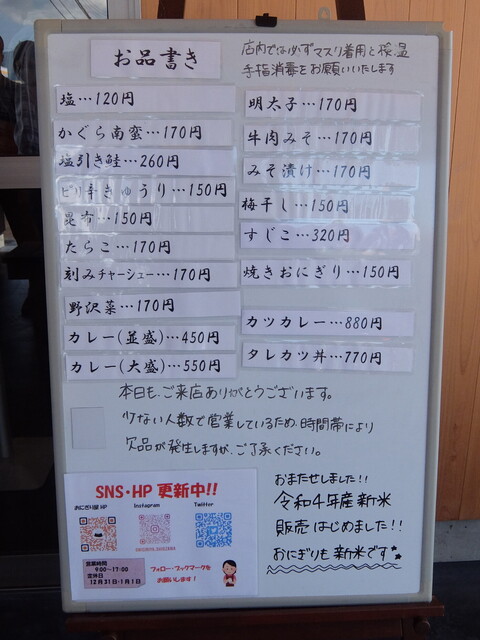 お品書き
店内では必ずマスク着用と検温
手指消毒をお願いいたします
塩…120円
かぐら南蛮…170円
塩引き鮭…260円
ピリ辛きゅうり…150円
昆布…150円
たらこ…170円
刻みチャーシュー…170円
野沢菜…170円
カレー(並盛)…450円
カレー(大盛)…550円
明太子…170円
牛肉みそ…170円
みそ漬け…170円
梅干し…150円
すじこ…320円
焼きおにぎり…150円
カツカレー…880円
タレカツ丼…770円
本日も、ご来店ありがとうございます。
少ない人数で営業しているため、時間帯により
欠品が発生しますが、ご了承ください。
SNS・HP 更新中!!
おにぎり屋 HP
Instagram
Twitter
営業時間
9:00~17:00
定休日
12月31日・1月1日
フォロー・ブックマークを
お願いします!
おまたせしました!!
令和4年産新米
販売はじめました!!
おにぎりも新米です